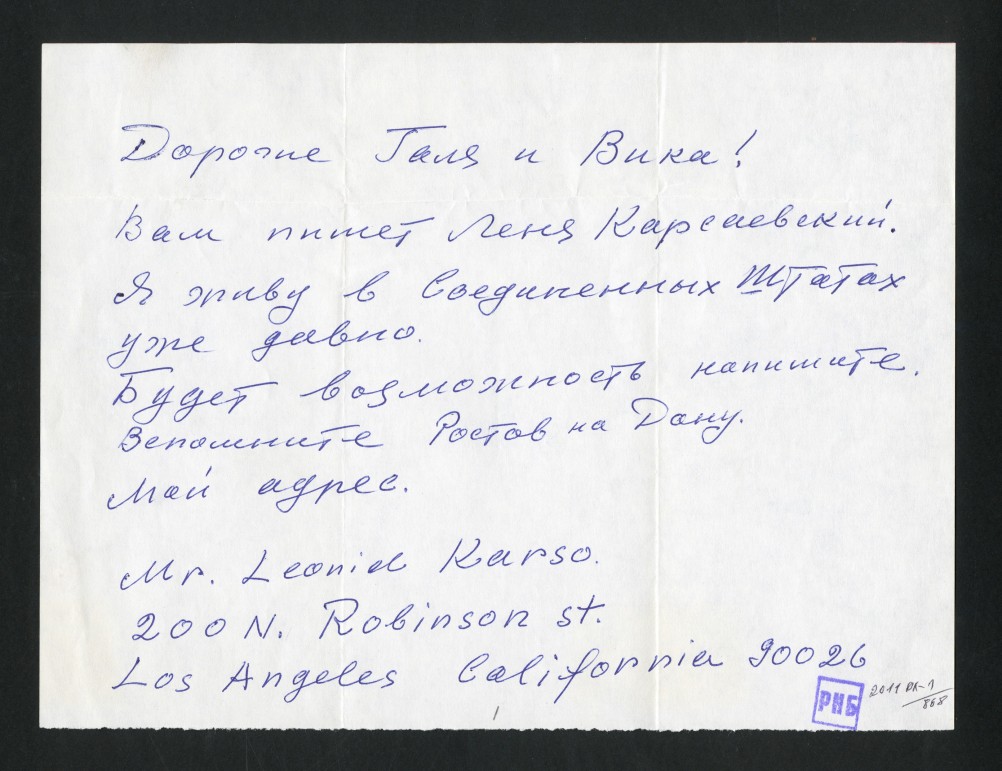 Дорогие Галя и Вика!
Вам пишет Леня Карсаевский.
Я живу в Соединенных Штатах
уже давно.
Будет возможность напишите.
Вспомните Ростов на Дону.
Мой адрес.
Mr. Leonid Karso.
200 N. Robinson st.
Los Angeles California 90026
РНБ
2011 РА-1
/868
1